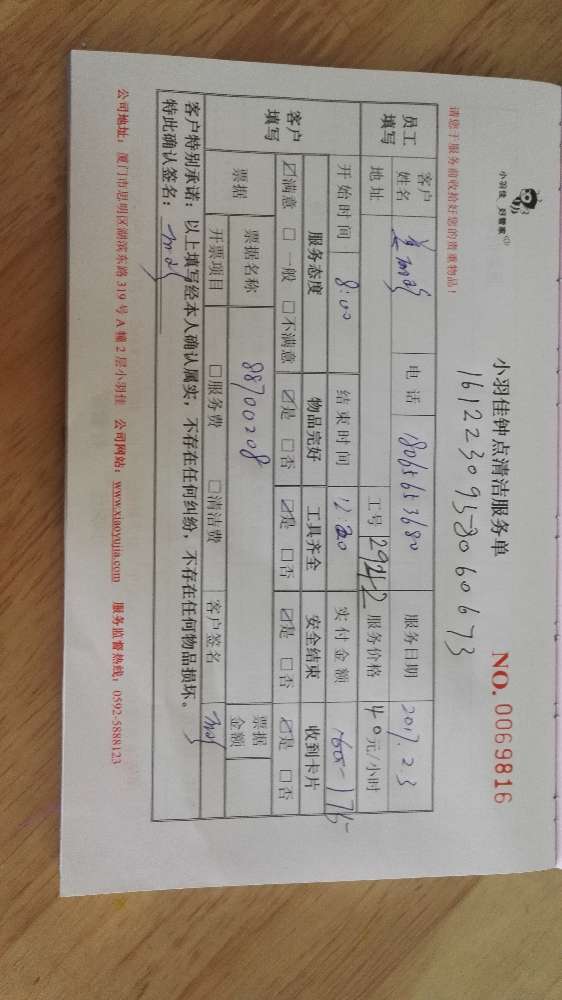 小羽佳 好管家
小羽佳钟点清洁服务单
NO. 0069816
161223095-8060673
请您于服务前收拾好您的贵重物品！
员工填写 客户姓名 电话 18065653680 服务日期 2017.2.3
地址 工号 2942 服务价格 40元/小时
开始时间 8:00 结束时间 实付金额
客户填写 服务态度 物品完好 工具齐全 安全结束 收到卡片
☑满意 □一般 □不满意 ☑是 □否 ☑是 □否 ☑是 □否 ☑是 □否
票据 票据名称 88700208 票据金额
开票项目 □服务费 □清洁费 客户签名
客户特别承诺：以上填写经本人确认属实，不存在任何纠纷，不存在任何物品损坏。
特此确认签名：
公司地址：厦门市思明区湖滨东路319号A幢2层小羽佳 公司网站：www.xiaoyujia.com 服务监督热线：0592-5888123